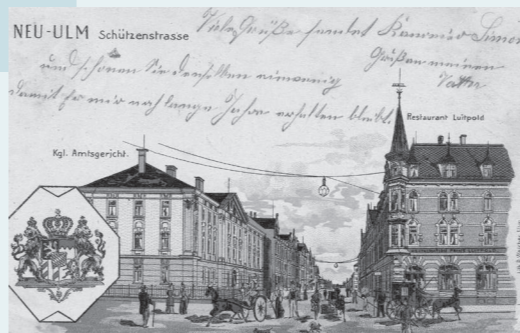 NEU-ULM Schützenstrasse
Viele Grüße sendet Simon
Grüßen meinen
und schönen Sie denselben einwenig Vater
damit Er mir noch lange Jahre erhalten bleibt.
Restaurant Luitpold
Kgl. Amtsgericht.